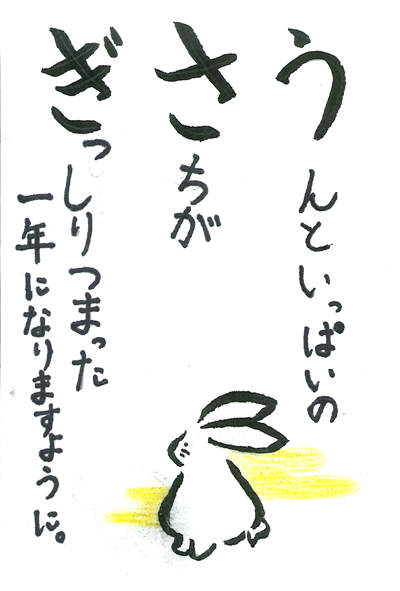 うんといっぱいの
さちが
ぎっしりつまった
一年になりますように。